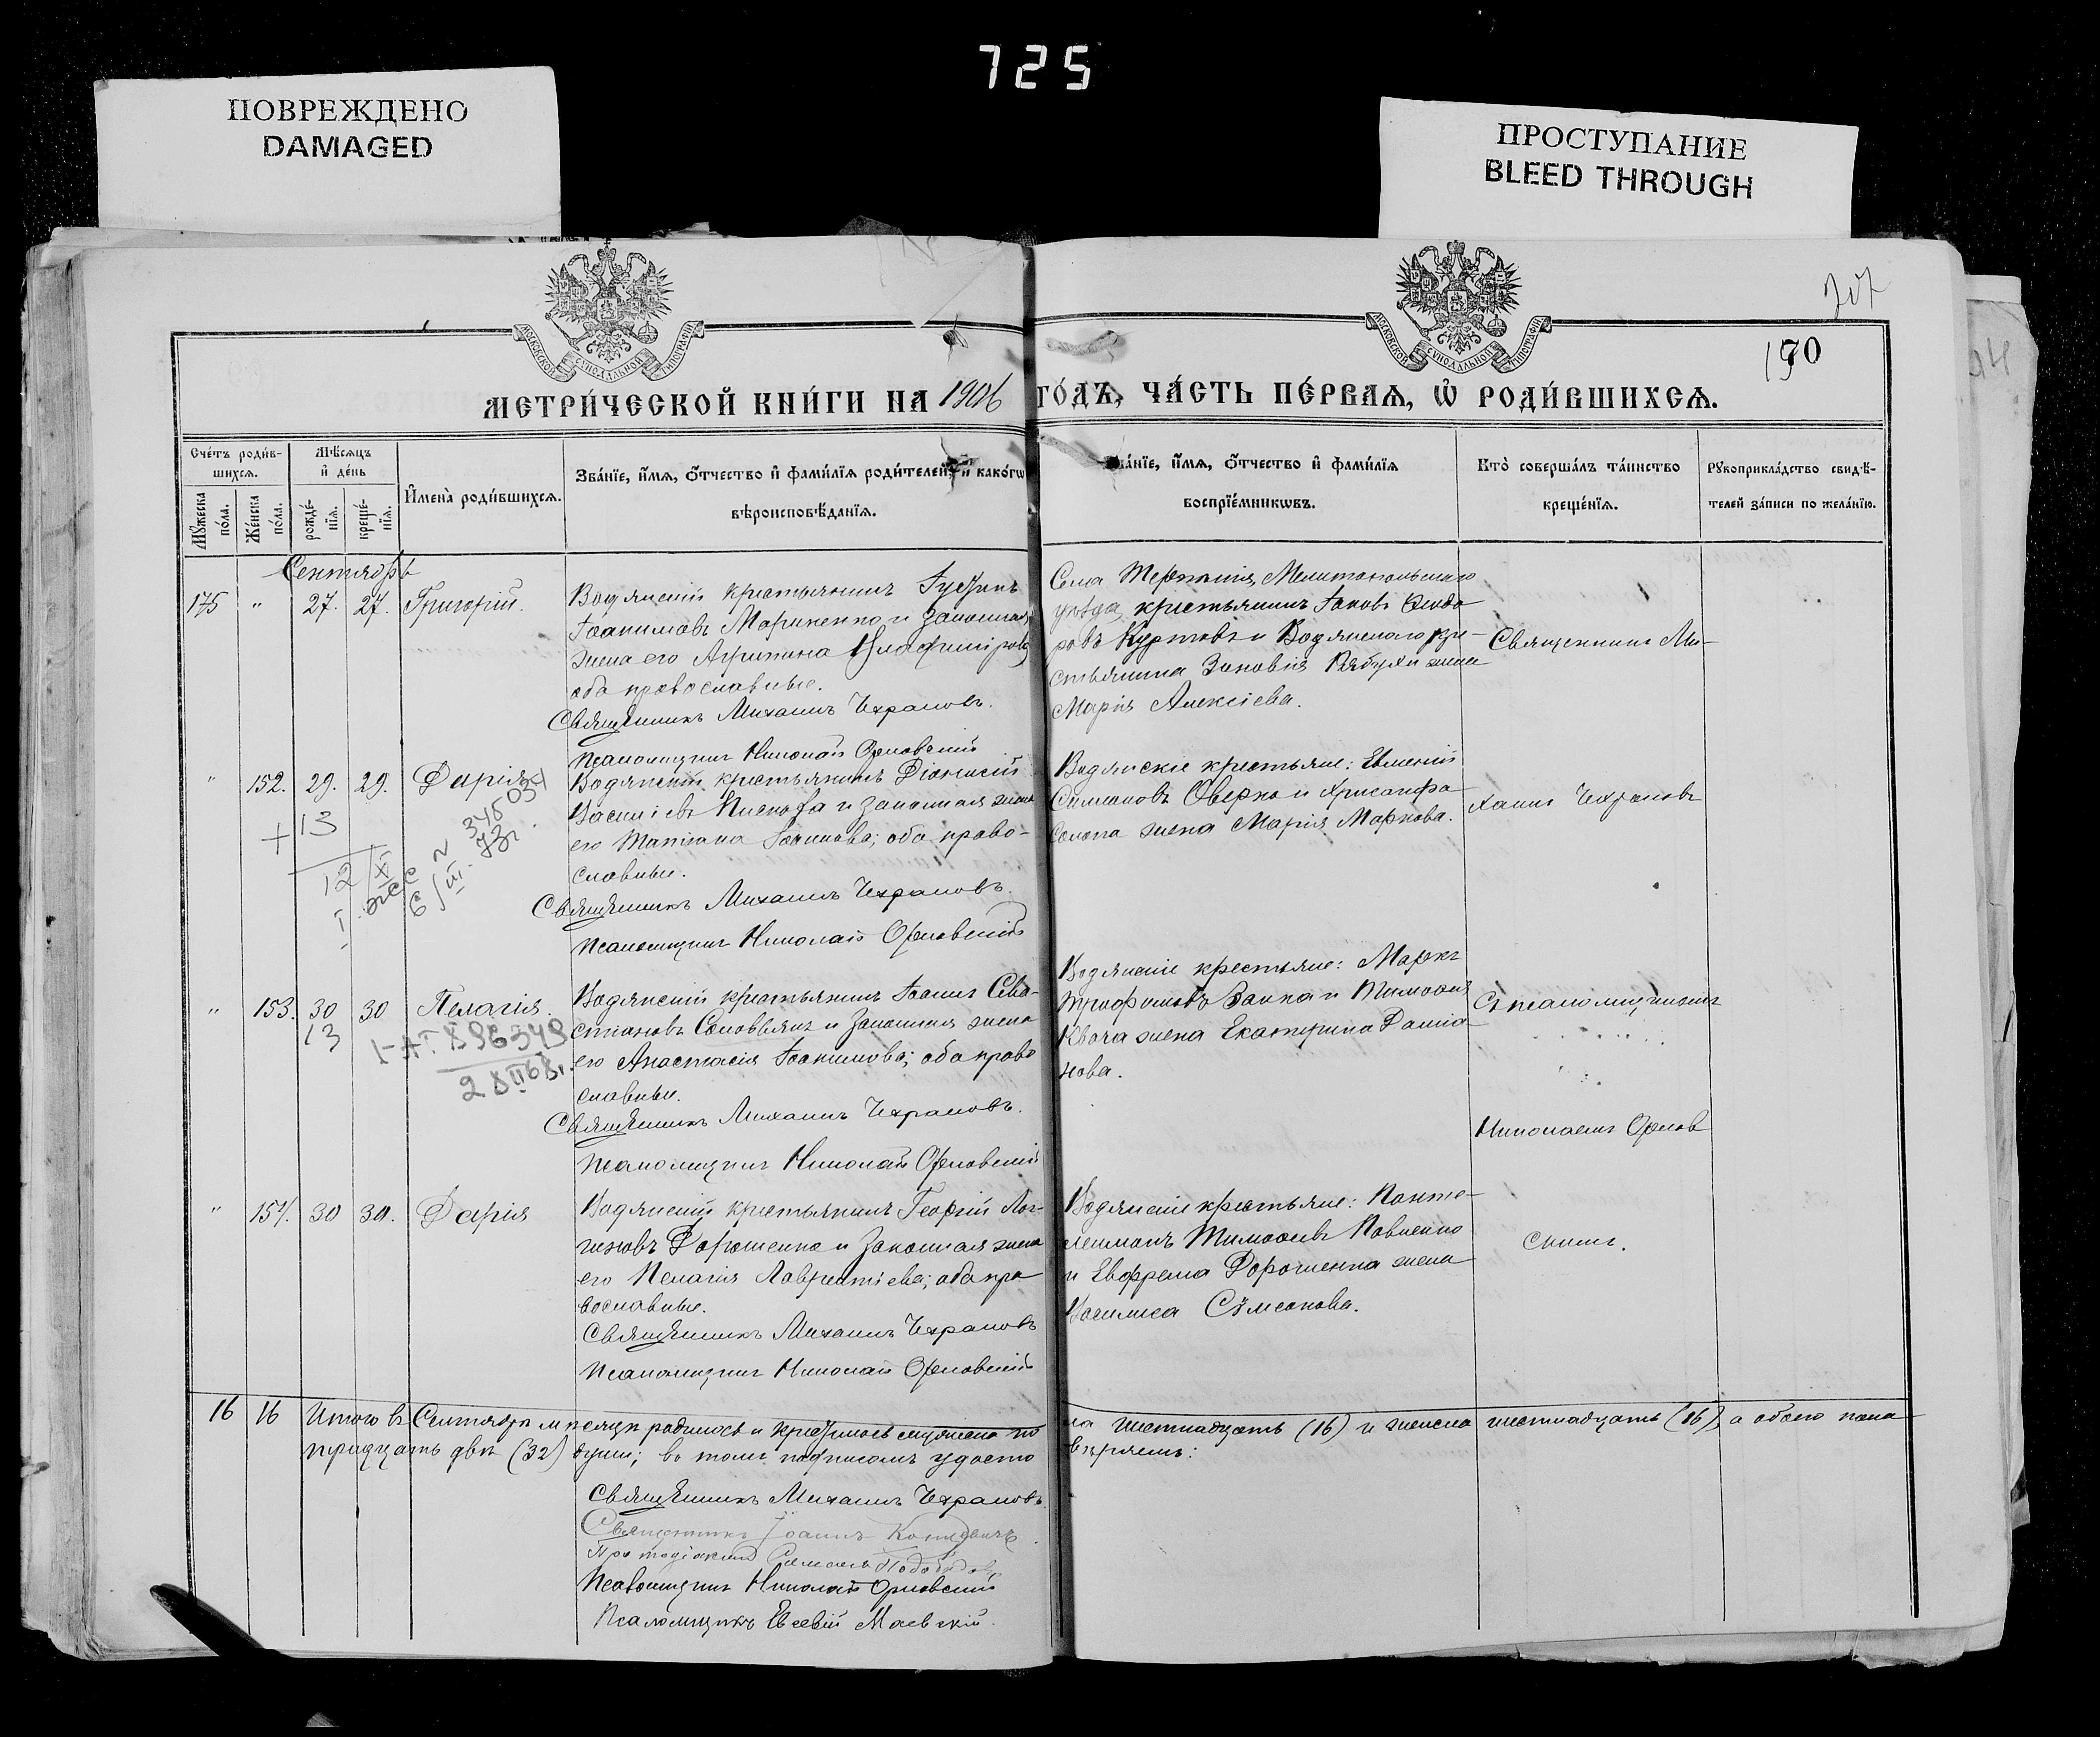 725
ПОВРЕЖДЕНО
DAMAGED
ПРОСТУПАНИЕ
BLEED THROUGH
МОСКОВСКОЙ СѴНОДАЛЬНОЙ ТИПОГРАФІИ
МОСКОВСКОЙ СѴНОДАЛЬНОЙ ТИПОГРАФІИ
707
190
МЕТРИ́ЧЕСКОЙ КНИ́ГИ НА 1906 ГО́ДЪ, ЧА́СТЬ ПЕ́РВАЯ, Ѡ҆ РОДИ́ВШИХСЯ.
Сче́тъ роди́в-
шихся.
Мѣ́сяцъ
и҆ де́нь
Мꙋ́жеска
по́ла.
Же́нска
по́ла.
рожде́-
нїя.
креще́-
нїя.
И҆мена̀ роди́вшихся.
Зва́нїе, и҆́мя, ѻ҆́тчество и҆ фами́лїя роди́телей, и҆ како́гѡ
вѣроисповѣ́данїя.
Зва́нїе, и҆́мя, ѻ҆́тчество и҆ фами́лїя
воспрїе́мникѡвъ.
Кто̀ соверша́лъ та́инство
креще́нїя.
Рꙋкоприкла́дство свидѣ́-
телей за́писи по жела́нїю.
Сентябрь
175 " 27. 27. Григорій.
Водянскій крестьянинъ
Іоакимовъ Мариненко и законная
жена его Агрипина
оба православные.
Священникъ Михаилъ Чехрановъ.
Псаломщикъ Николай Орловскій
Села Терпѣнія, Мелитопольскаго
уѣзда, крестьянинъ Іаковъ Ѳеодо
ровъ Куртовъ и Водянскаго кре-
стьянина Зиновія Рябухи жена
Марія Алексіева.
Священникъ Ми-
" 152. 29. 29. Дарія
+ 13
12/XI
№ 345034
6/III. 73г.
Водянскій крестьянинъ Діонисій
Василіевъ и законная жена
его Татіана Іоаннова; оба право-
славные.
Священникъ Михаилъ Чехрановъ.
Псаломщикъ Николай Орловскій
Водянскіе крестьяне: Евменій
Симеоновъ Оверко и Хрисанфа
Солопа жена Марія Маркова.
хаилъ Чехрановъ
" 153. 30 30 Пелагія.
13
896949
Водянскій крестьянинъ Іоаннъ Сева-
стіановъ Соловьянъ и законная жена
его Анастасія Іоакимова; оба право
славные.
Священникъ Михаилъ Чехрановъ.
Псаломщикъ Николай Орловскій
Водянскіе крестьяне: Маркъ
Трофимовъ Заика и Тимоѳея
Квача жена Екатерина Даміа
нова.
Съ псаломщикомъ
Николаемъ Орлов
" 154. 30 30. Дарія
Водянскій крестьянинъ Георгій Лог-
гиновъ Дорошенко и законная жена
его Пелагія Лаврентіева; оба пра
вославные.
Священникъ Михаилъ Чехрановъ
Псаломщикъ Николай Орловскій
Водянскіе крестьяне: Панте-
леимонъ Тимоѳеевъ Павленко
и Евфрема Дорошенка жена
Василиса Сѵмеонова.
скимъ.
16 16 Итого въ Сентябрѣ мѣсяцѣ родилось и крестилось мужеска по
ла шестнадцать (16) и женска шестнадцать (16), а обоего пола
тридцать двѣ (32) души; въ томъ подписомъ удосто
вѣряемъ:
Священникъ Михаилъ Чехрановъ.
Священникъ Іоаннъ
Псаломщикъ Николай Орловскій
Псаломщикъ Евсевій Маевскій.